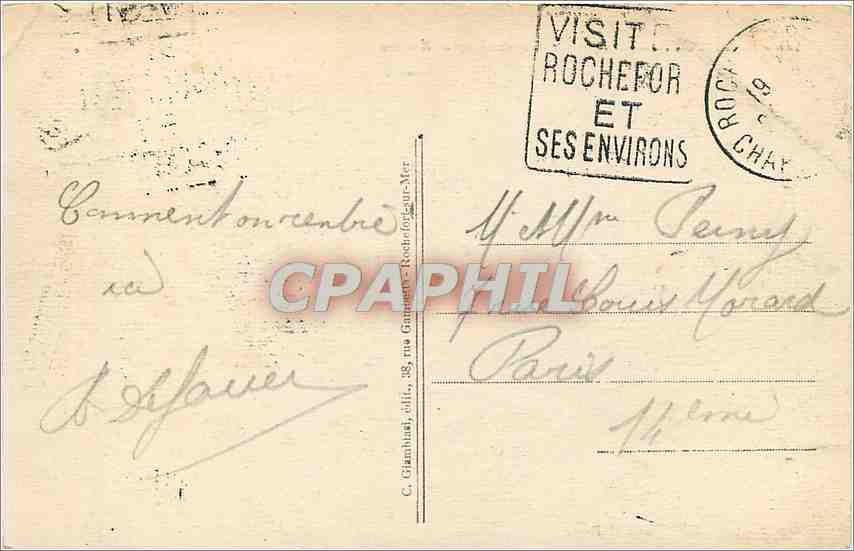 VISIT
ROCHEFOR
ET
SES ENVIRONS
ROC
19
CHA
Comment on rentre
ici
C. Giambiasi, édit., 38, rue Gambetta - Rochefort-sur-Mer
CPAPHIL
M Mme
Louis Morard
Paris
14 ème